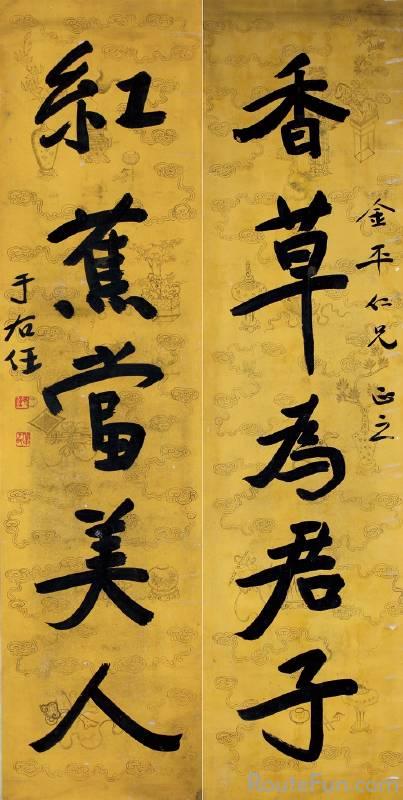 金平仁兄 正之
香草為君子
紅蕉當美人
于右任
RouteFun.com